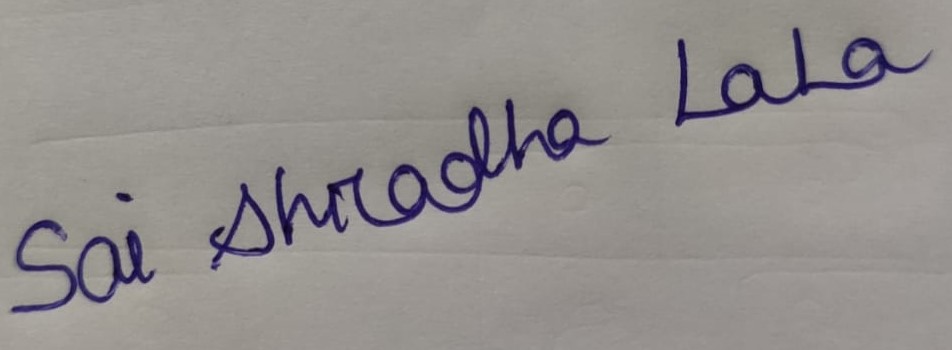 Sai Shradha LaLa